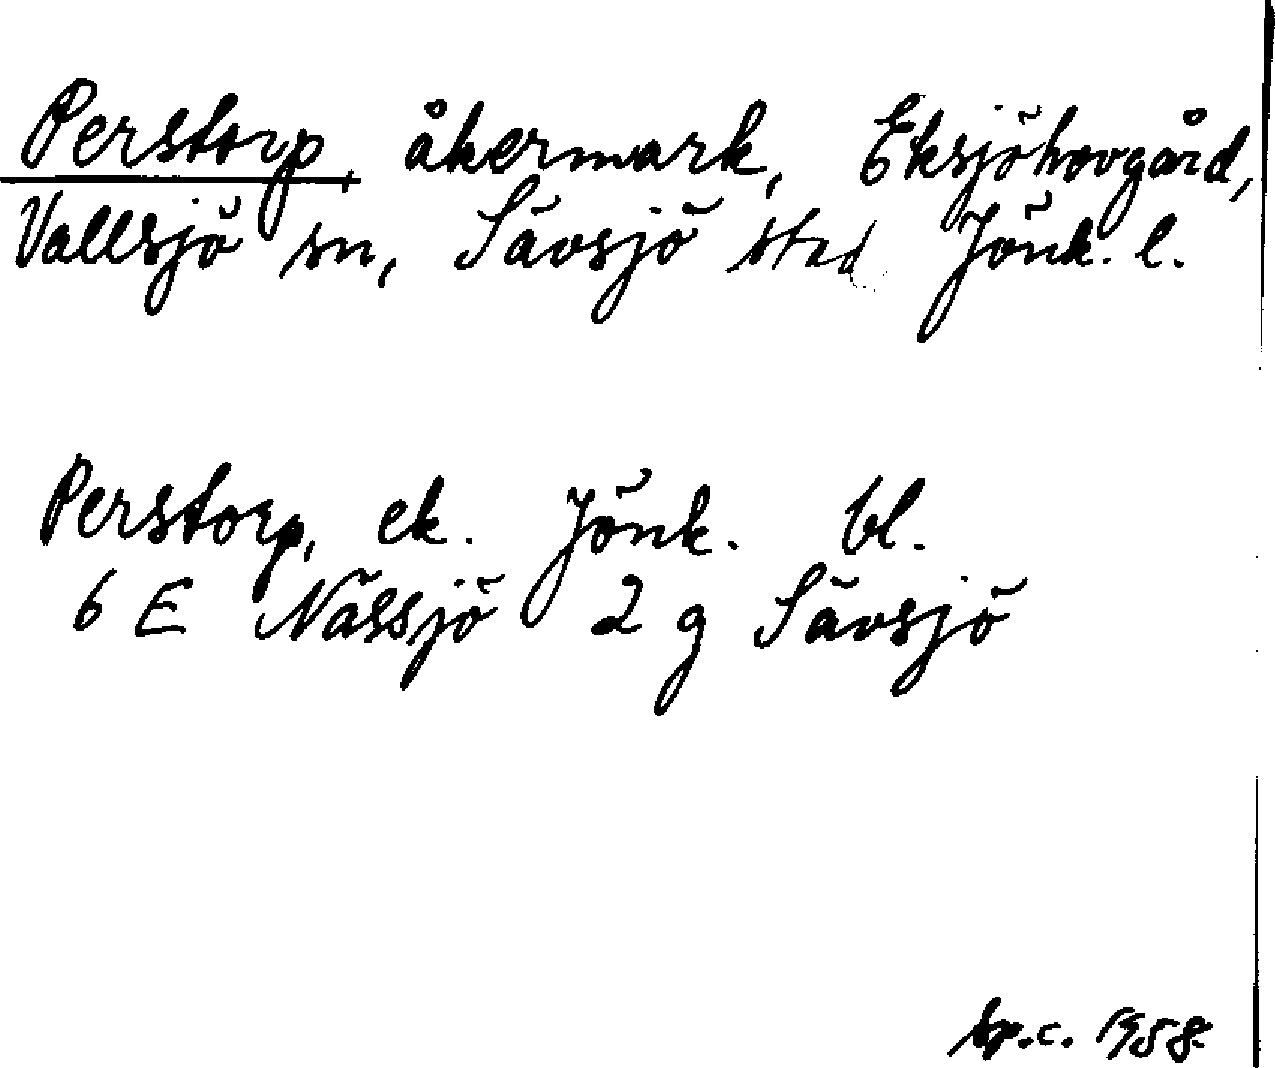 Perstorp, åkermark, Eksjöhovgård,
Vallsjö sn, Sävsjö stad Jönk. l.
Perstorp, ek. Jönk. bl.
6 E Nässjö 2 g Sävsjö
1958